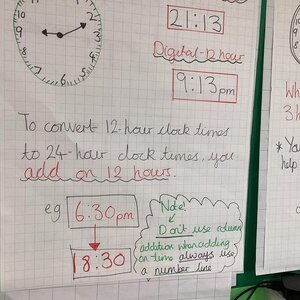 12
1
2
3
4
5
6
7
8
9
10
11
21:13
Digital-12 hour
9:13pm
To convert 12-hour clock times
to 24-hour clock times, you
add on 12 hours.
eg 6:30pm
18:30
Note!
Don't use column
addition when adding
on time always use
a number line
3 h
help